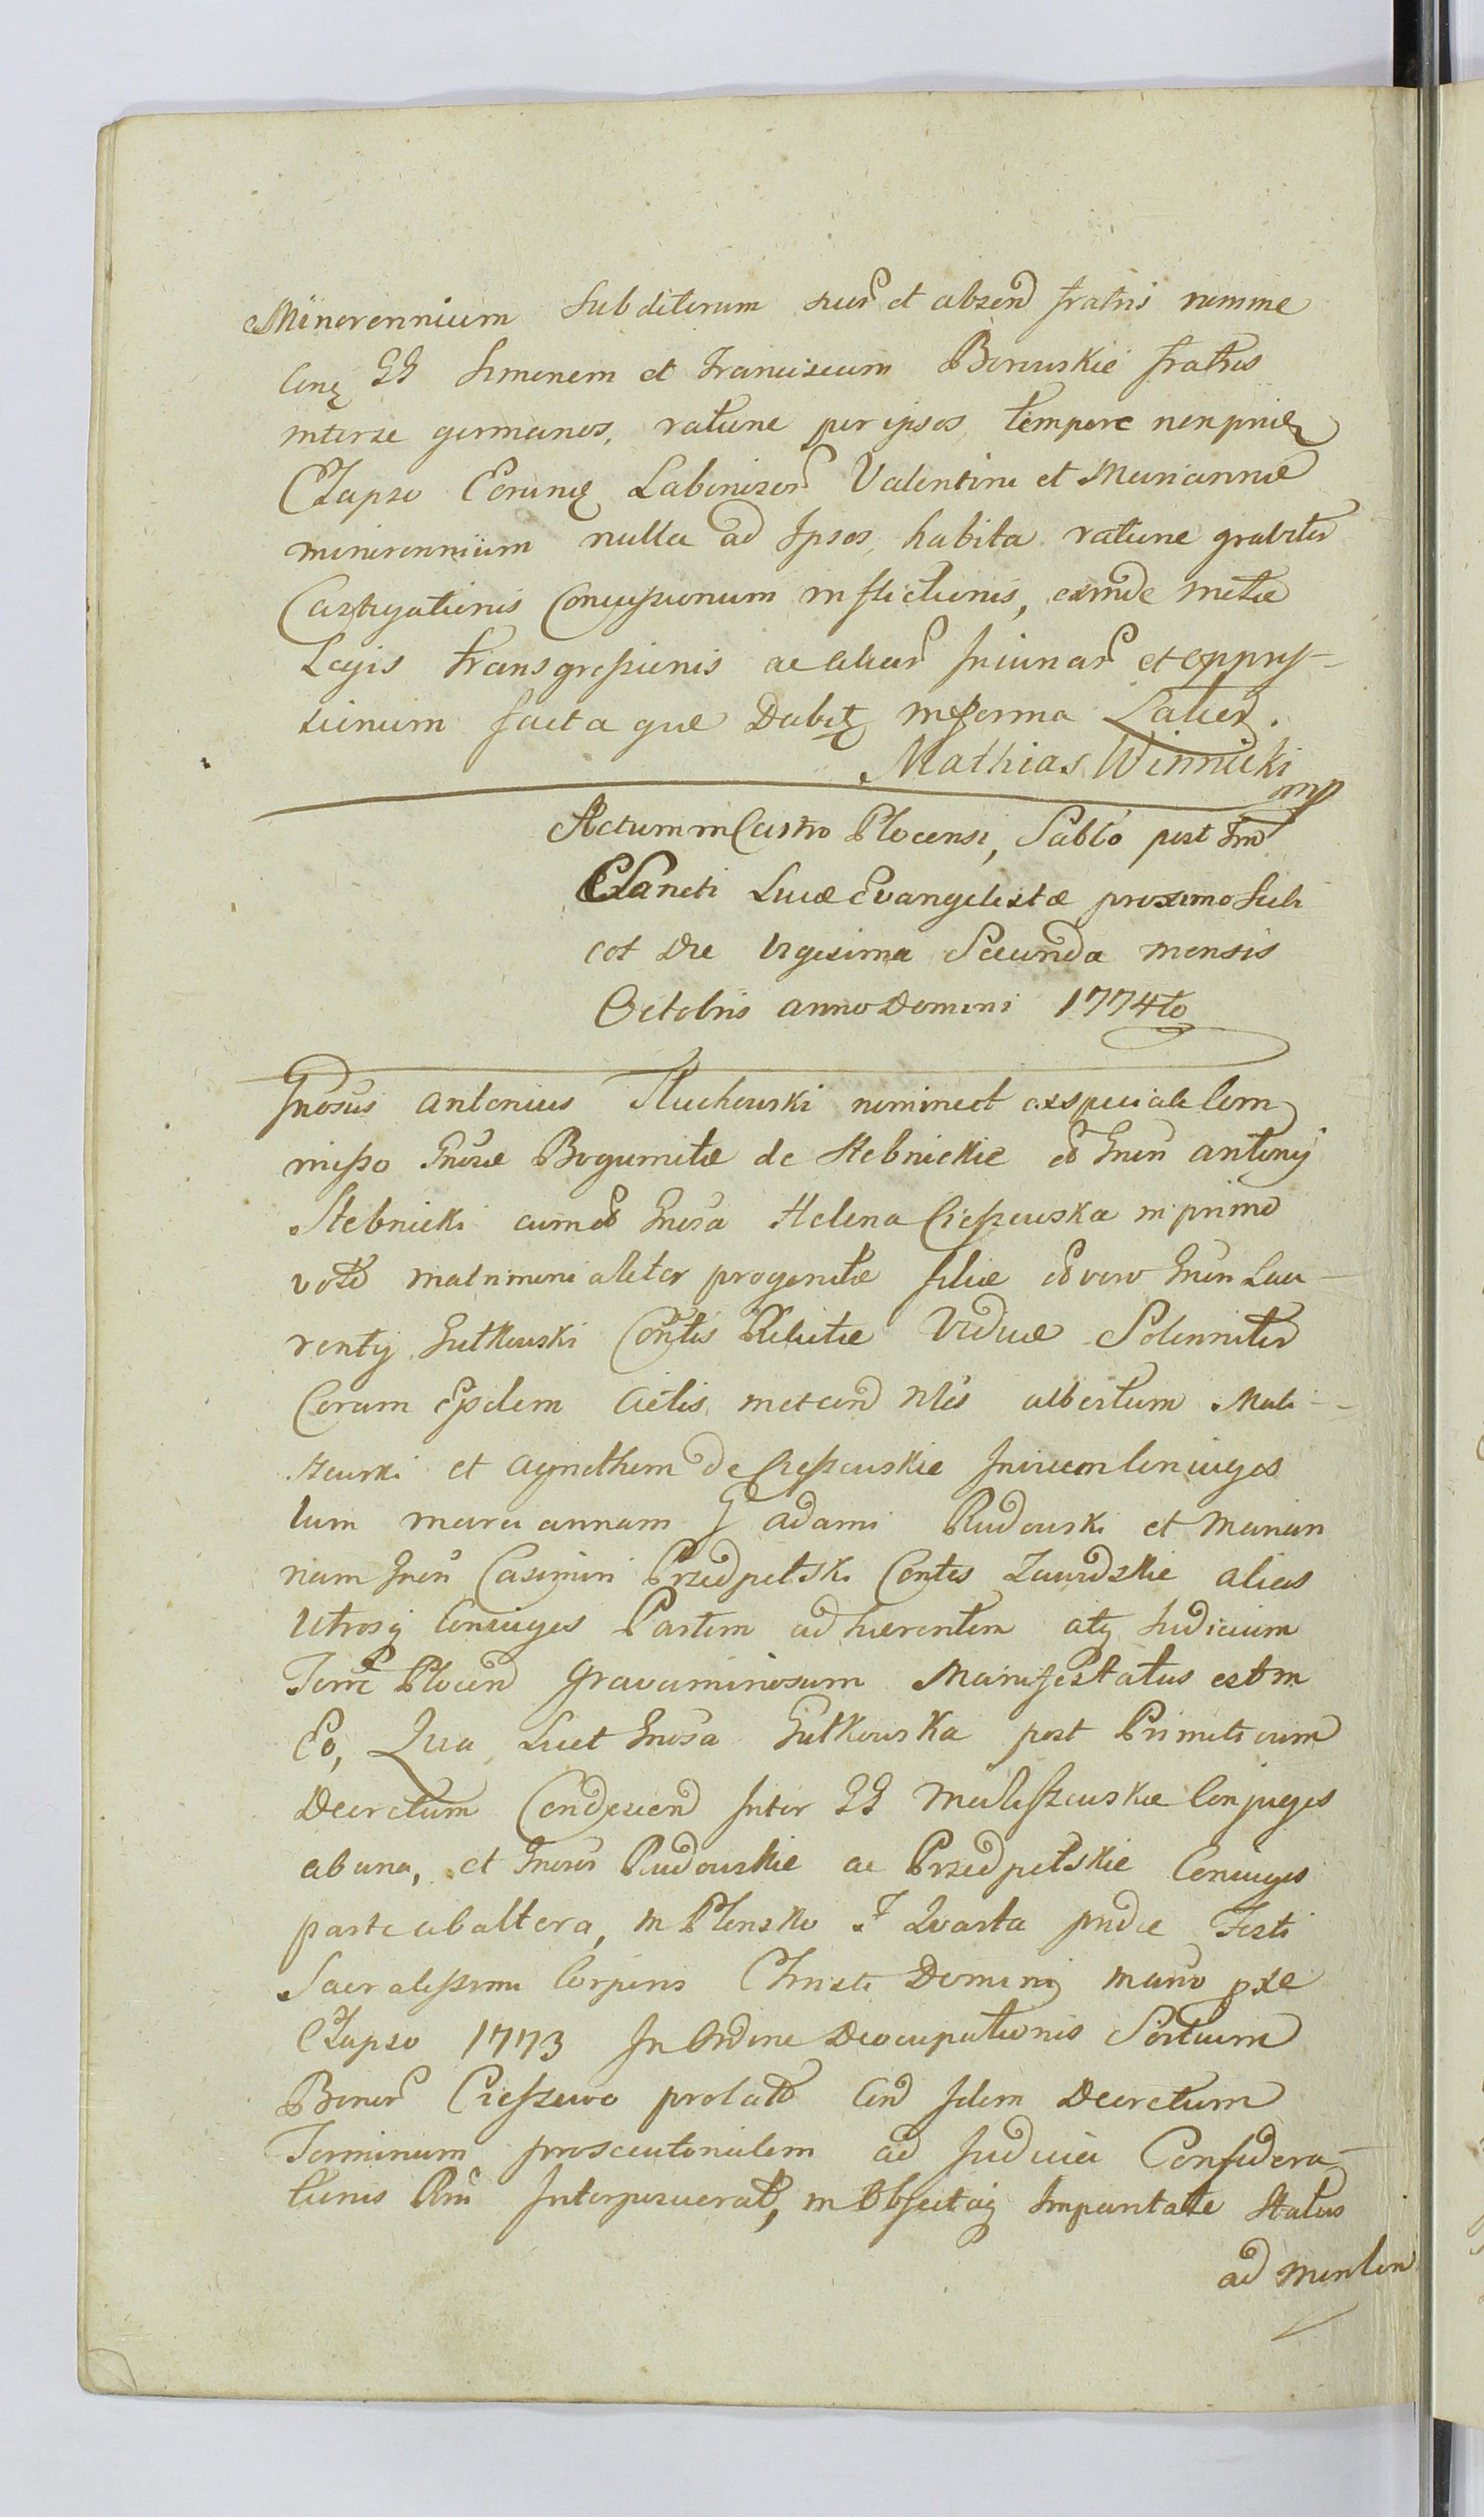 Minorennium Subditorum suor et absend fratris nomine
Conq GG Simonem et Franciscum Borowskie fratres
interse germanos, ratione per ipsos tempore non priđ
Elapso Eorunq Laboriosor Valentini et Mariannæ
minorennium nulla ad Ipsos, habita ratione graviter
Castigationis Concussionum inflictionis, exinde metæ
Legis transgressionis ac aliar Injuriar et oppres-
sionum facta quæ Dabit in forma Latiori.
Mathias Winnicki
mp
Actum in Castro Plocensi, Sabbo post Fm
Sancti Lucæ Evangelistæ proximo Scili
cet Die vigesima Secunda mensis
Octobris anno Domini 1774to
Gnosus Antonius Tłuchowski nomine et ex speciali Com
misso Gnosæ Bogumilæ de Stebnickie od Gnosi Antonij
Stebnicki cum od Gnosa Helena Cieszewska in primo
voto matrimonialiter progenitæ filiæ od vero Gnosi Lau-
rentij Gutkowski Contis Relictæ Viduæ Solenniter
Coram Epdem Actis metcon Nles Albertum Mali-
szewski et Agnethem de Cieszewskie Invicem Coniuges
tum Mariannam G Adami Rudowski et Marian
nam Gnosi Casimiri Przedpełski Contes Zawidzkie alias
Utrosq Coniuges Partem adhærentem atq Judicium
Terre Plocen Gravaminosum Manifestatus est in
Eo, Quia Licet Gnosa Gutkowska post Primitivum
Decretum Condescend Inter GG Maliszewskie Conjuges
ab una, et Gnosos Rudowskie ac Przedpełskie Coniuges
parte ab altera, in Płonsko F Quarta pridie Festi
Sacratissimi Corporis Christi Domini anno pte
Elapso 1773 In Ordine Deocupationis Sortium
Bonor Cieszewo prolato Cond Idem Decretum
Terminum prosecutorialem ad Judicia Confidera-
tionis Rni Interposuerat, in Objectaq Impuritate Status
ad menten